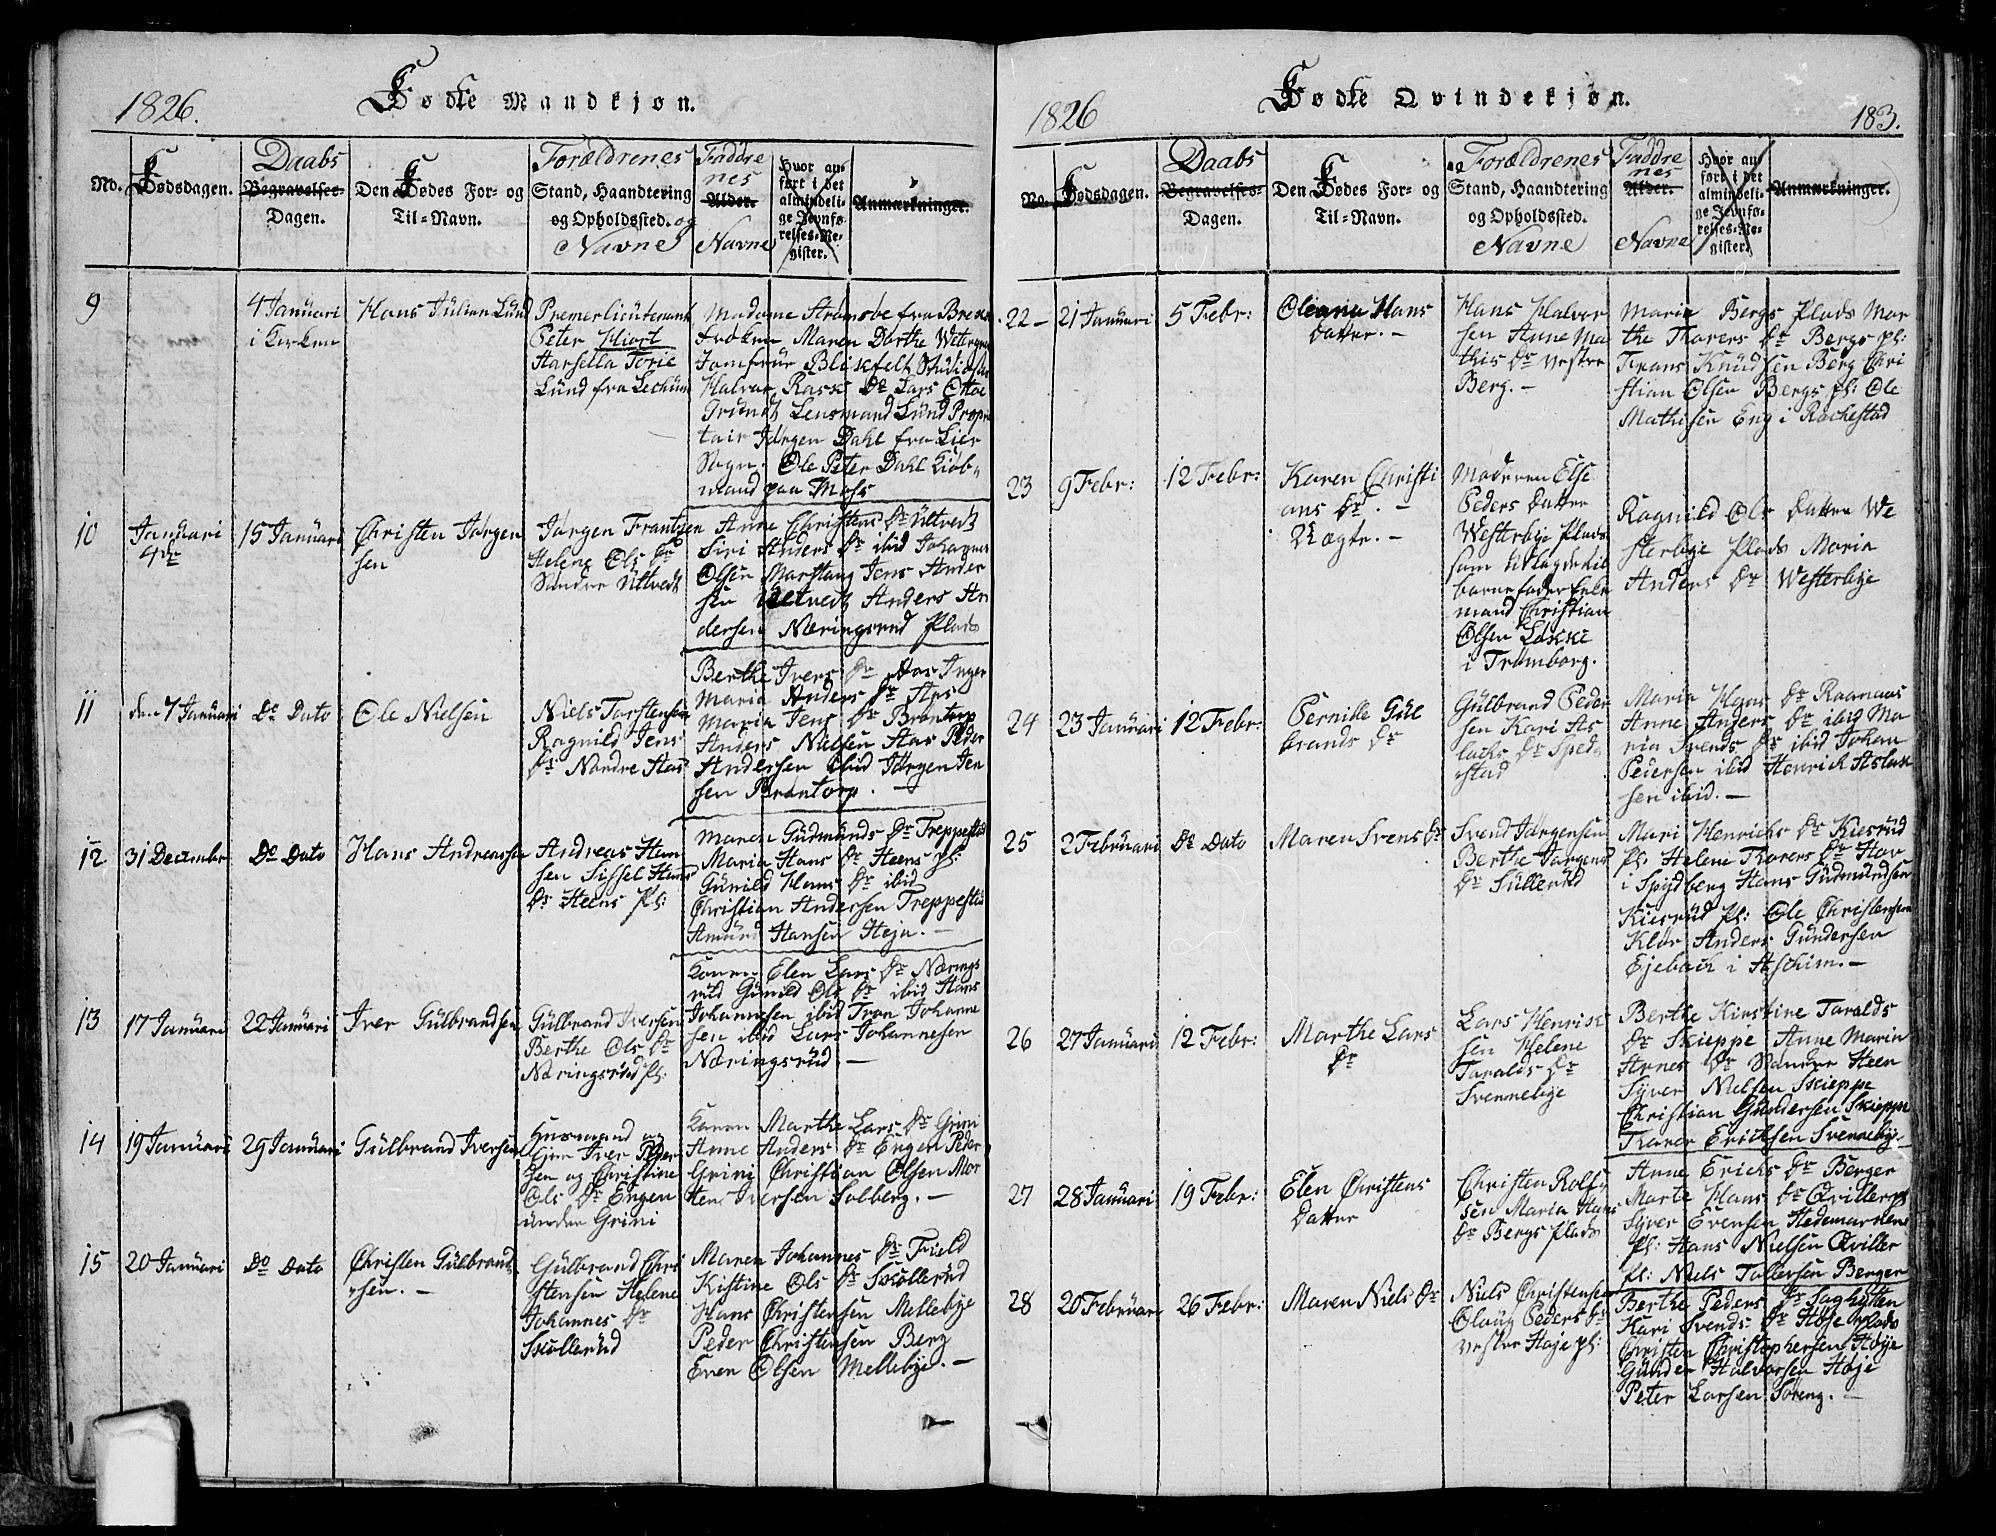 1826.
Fødte Mandkjøn.
No.
Fødsdagen.
Daabs
Begravelses-
Dagen.
Den Fødes For- og
Til-Navn.
Forældrenes
Stand, Haandtering
og Opholdssted. og
Navne
Faddre
nes
Alder.
Navne
Hvor an-
ført i det
almindeli-
ge Jevnfø-
relses-Re-
gister.
Anmærkninger.
9
4 Januari
i Kirken
Hans Julian Lund
Premerlieutenant
Peter Hiort
Lund fra
Madame Strømsøe fra
Frøken Maren Dorthe
Jomfrue Blixfelt
Halvor Rask Dr Lars Otto
Grundt Lensmand Lund Propri
tair Jørgen Dahl fra Lier
Sogn. Ole Peter Dahl Kiøb-
mand paa Moss
10
Januari
4de
15 Januari
Christen Jørgen
sen
Jørgen Frantsen
Helene Ols Dr
Søndre Ultvedt
Anne Christens Dr Ultvedt
Siri Anders Dr ibid Johannes
Olsen Marstang Jens Ander
sen Ultvedt Anders An
dersen Næringsrud Plads
11
den 7 Januari
Do Dato
Ole Nielsen
Niels Torstensen
Ragnild Jens
Dr Nordre Aas
Berthe Ivers Dr Aas Inger
Maria Anders Dr Aas
Maria Jens Dr Brontorp
Anders Nielsen Aas Peder
Andersen ibid Jørgen Jen
sen Brontorp. —
12
31 Decembr
Do Dato
Hans Andreassen
Andreas Han
sen Sissel Hans
Dr Heens Pl:
Maren Gudmunds Dr Treppestad
Maria Hans Dr Heens Pl:
Gunild Hans Dr ibid
Christian Andersen Treppestad
Amund Hansen Heja. —
13
17 Januari
22 Januari
Iver Gulbrandsen
Gulbrand Iversen
Berthe Ols Dr
Næringsrud Pl:
Konen Elen Lars Dr Nærings
rud Gunild Ols Dr ibid Hans
Johannesen ibid Tron Johanne
sen ibid Lars Johannesen
Næringsrud —
14
19 Januari
29 Januari
Gulbrand Iversen
Huusmand og
Iver Peder
sen og Christine
Ols Dr Engen
under Grini
Konen Marthe Lars Dr Grini
Anne Anders Dr Engen Peder
Grini Christian Olsen Mor
ten Iversen Solberg. —
15
20 Januari
Do Dato
Christen Gulbrand
sen. —
Gulbrand Chri
stensen Helene
Johannes Dr
Skøllerud
Maren Johannes Dr Field
Kistine Ols Dr Skøllerud
Hans Christensen Mellebye
Peder Christensen Berg
Even Olsen Mellebye. —
1826
Fødte Qvindekjøn.
183.
No.
Fødsdagen.
Daabs
Begravelses-
Dagen.
Den Fødes For- og
Til-Navn.
Forældrenes
Stand, Haandtering
og Opholdssted.
Navne
Faddre
nes
Alder.
Navne
Hvor an-
ført i det
almindeli-
ge Jevnfø-
relses-Re-
gister.
Anmærkninger.
22 —
21 Januari
5 Febr:
Oleana Hans
Datter. —
Hans Halvor
sen Anne Ma
this Dr vestre
Berg. —
Maria Bergs Plads Mar
the Thorers Dr Bergs Pl:
Frans Knudsen Berg Chri
stian Olsen Bergs Pl: Ole
Mathisen Eng i Rachestad
23
9 Febr:
12 Febr:
Karen Christi
ans Dr. —
Uægte. —
Moderen Else
Peders Datter
Westerbye Plads
som Udlagde til
barnefader Enke
mand Christian
Olsen Løkke
i Trømborg.
Ragnild Ols Datter We
sterbye Plads Maria
Anders Dr Westerbye
24
23 Januari
12 Febr:
Pernille Gul
brands Dr
Gulbrand Peder
sen Kari As
lachs Dr Sped
stad
Maria Hans Dr Ragnaas
Anne Anders Dr ibid Ma
ria Svends Dr ibid Johan
Pedersen ibid Henrich Aslak
sen ibid. —
25
2 Februari
Do Dato
Maren Svens Dr
Svend Jørgensen
Berthe Jørgens
Dr Sullerud
Mari Henrichs Dr Kiesrud
Pl: Helene Thorers Dr Hov
i Spydberg Hans Gudmundsen
Kiesrud Pl: Ole Christensen
Kløv Anders Gundersen
Ejeback i Aschim. —
26
27 Januari
12 Febr:
Marthe Lars
Dr
Lars Henrik
sen Helene
Taralds Dr
Svennebye
Berthe Kirstine Taralds
Dr Skieppe Anne Maria
Arnes Dr Søndre Heen
Syver Nielsen Skieppe
Christian Gundersen Skieppe
Thorer Ericksen Svenneby —
27
28 Januari
19 Febr:
Elen Christens
Datter
Christen Rolf
sen Maria Hans
Dr Bergs Plads
Anne Erichs Dr Berger
Marte Hans Dr Qviller Pl
Syver Evensen Hedemarkens
Pl: Hans Nielsen Qviller
Pl: Niels Tollefsen Berger
28
20 Februari
26 Febr:
Maren Niels Dr
Niels Christensen
Oloug Peders Dr
vestre Høje Pl:
Berthe Peders Dr Saghytten
Kari Svends Dr Høje Plads
Christen Christophersen Høye
Gunder Halvorsen Høje
Peter Larsen Søreng. —